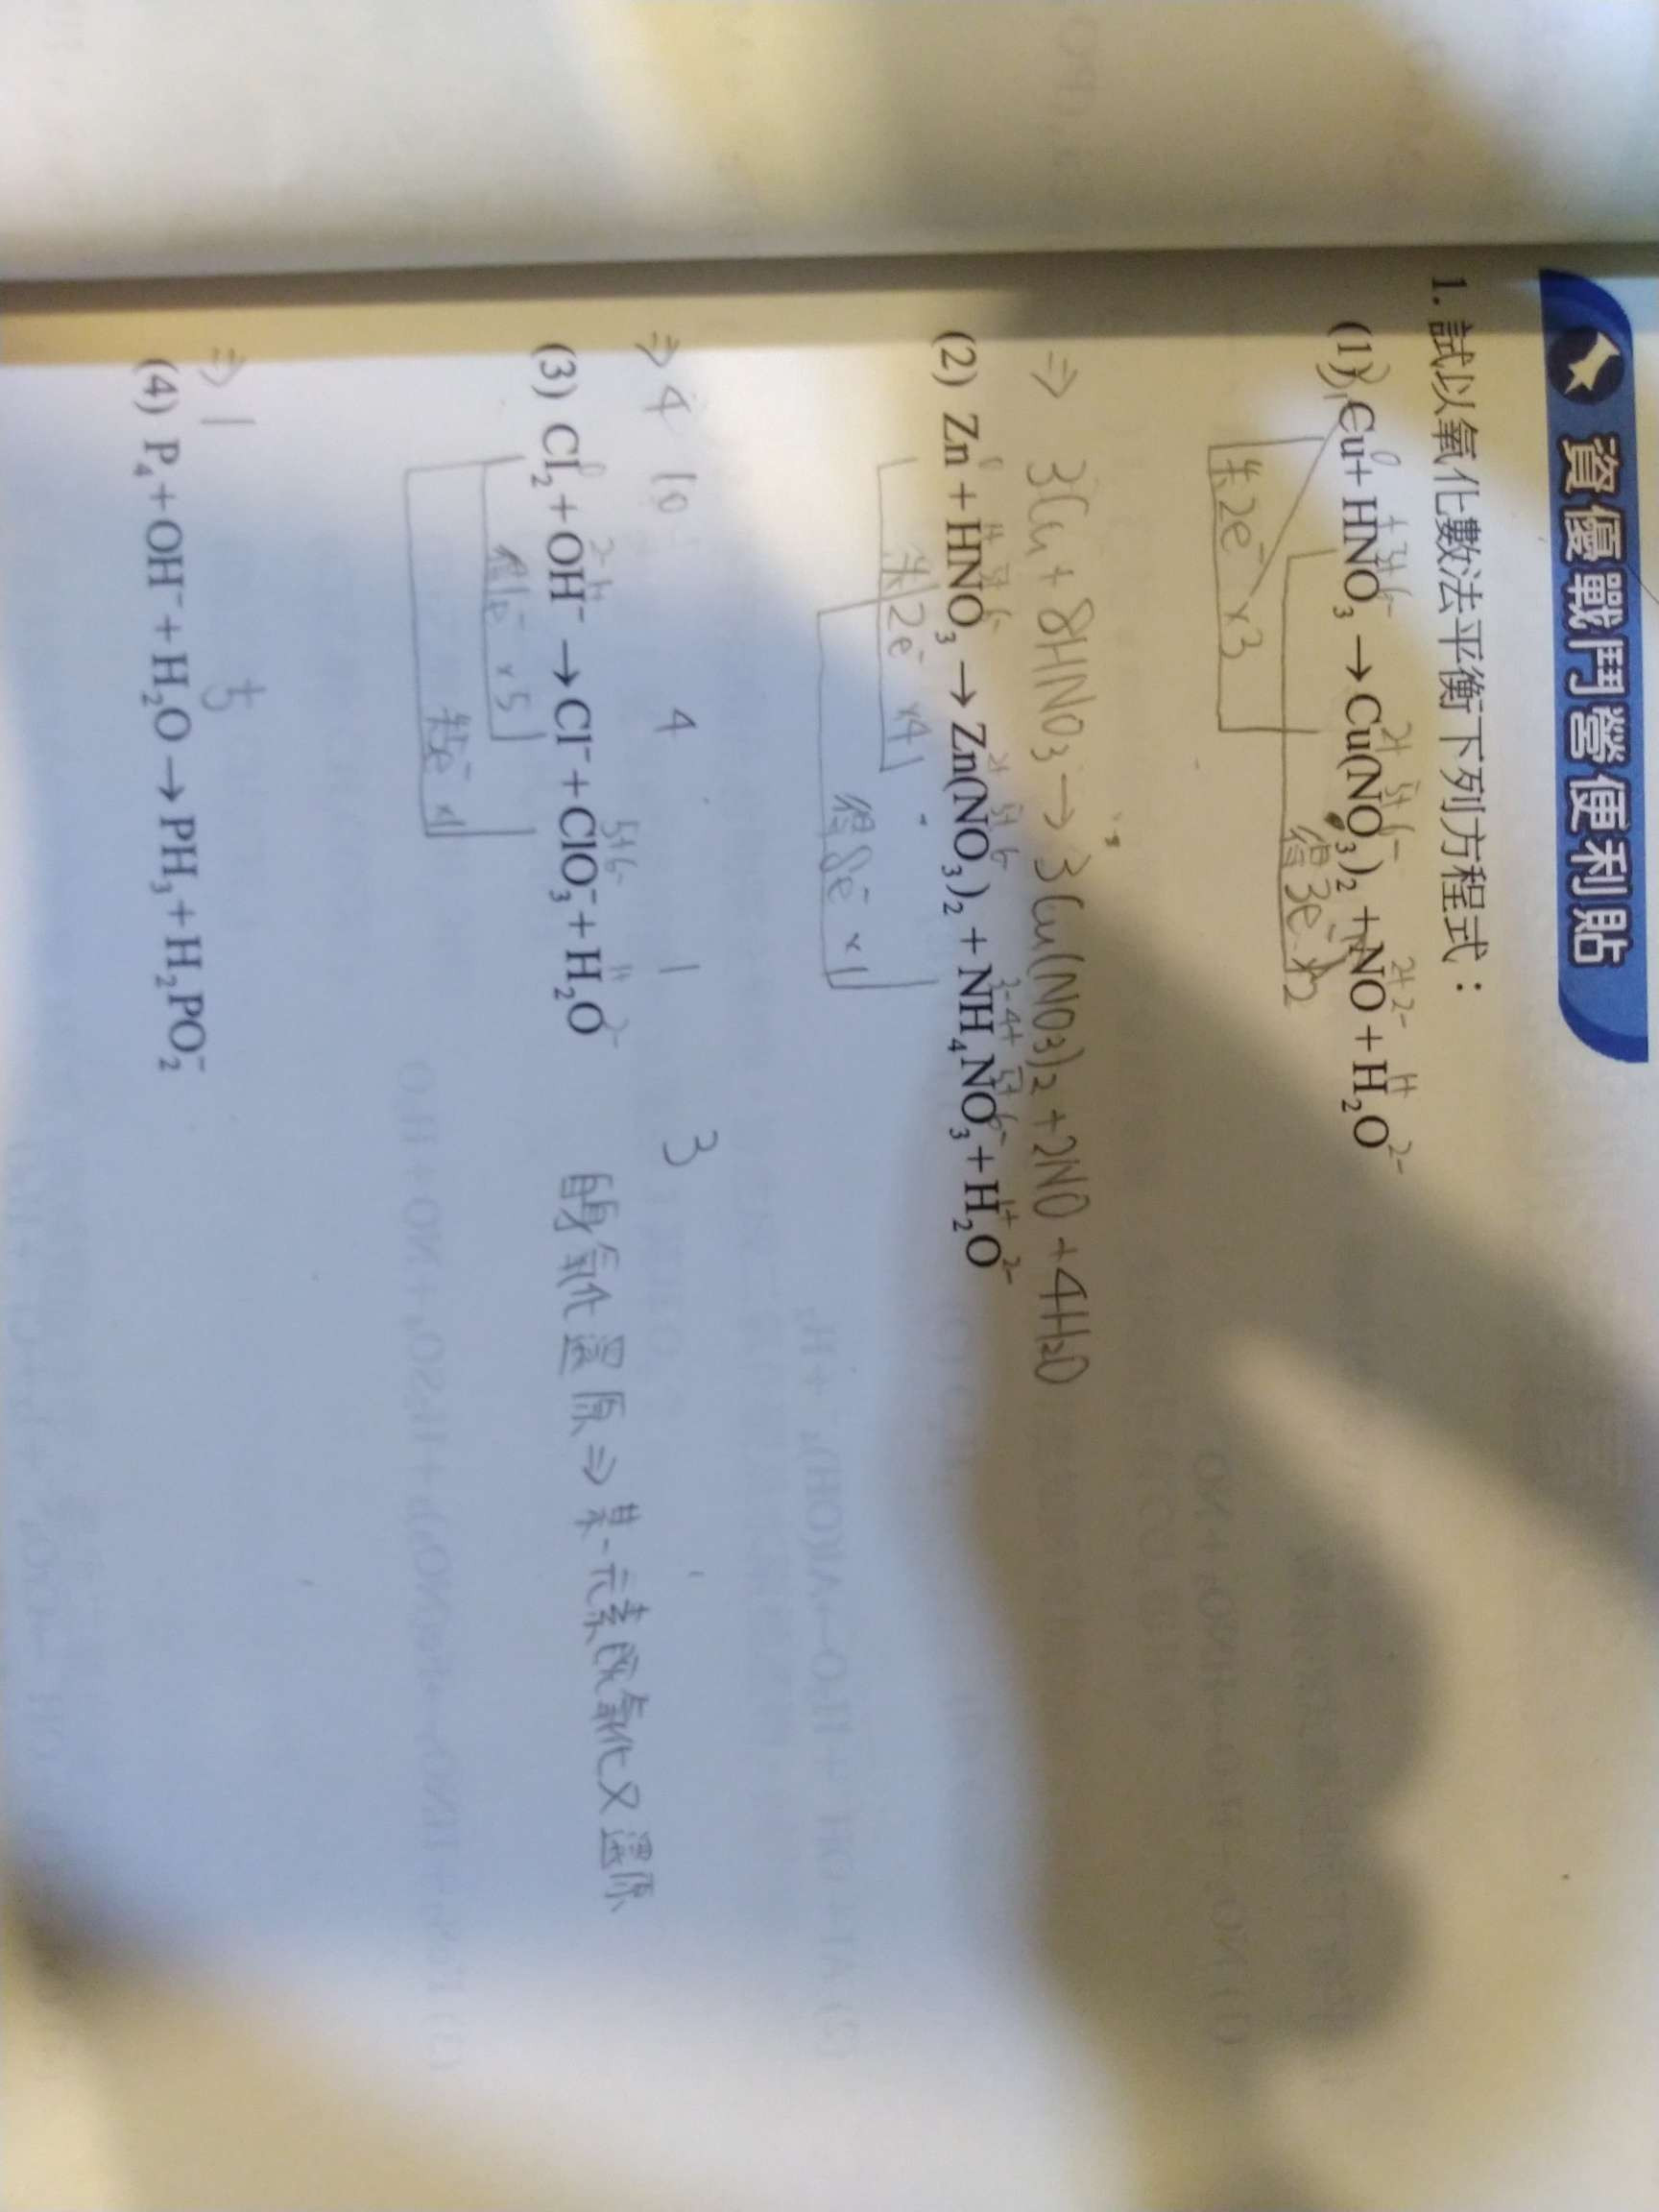 資優戰鬥營便利貼
1. 試以氧化數法平衡下列方程式：
(1) Cu + HNO₃ → Cu(NO₃)₂ + NO + H₂O
失2e⁻ ×3
得3e⁻ ×2
⇒ 3Cu + 8HNO₃ → 3Cu(NO₃)₂ + 2NO + 4H₂O
(2) Zn + HNO₃ → Zn(NO₃)₂ + NH₄NO₃ + H₂O
失2e⁻ ×4
得8e⁻ ×1
⇒ 4 10 4 1 3
(3) Cl₂ + OH⁻ → Cl⁻ + ClO₃⁻ + H₂O
自身氧化還原 ⇒ 某一元素既氧化又還原
得1e⁻ ×5
失5e⁻ ×1
⇒ 1
(4) P₄ + OH⁻ + H₂O → PH₃ + H₂PO₂⁻